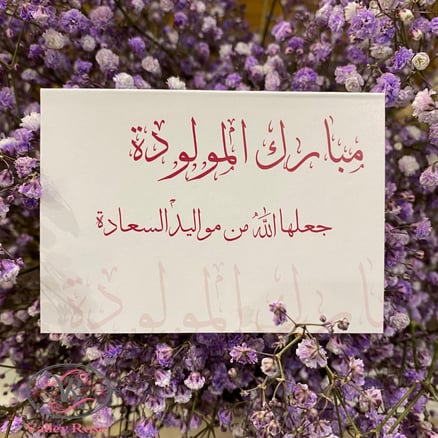 مبارك المولودة
جعلها الله من مواليد السعادة
مبارك المولودة
Valley Rose